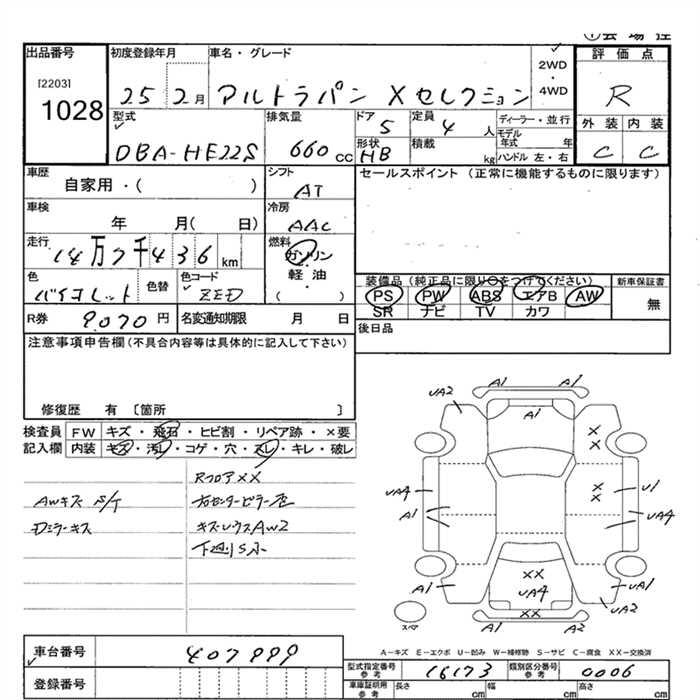 出品番号
[2203]
1028
初度登録年月
25 2月
車名・グレード
アルトラパン Xセレクション
2WD
・
4WD
評価点
R
外装 内装
C C
型式
DBA-HE22S
排気量
660 cc
ドア
5
定員
4 人
形状
HB
積載
kg
ディーラー・並行
モデル
年式 年
ハンドル 左・右
車歴
自家用・( )
シフト
AT
車検
年 月( 日)
冷房
AAC
走行
14万7千436 km
燃料
ガソリン
・
軽油
( )
色
バイオレット
色替
色コード
ZED
R券
9,070 円
名変通知期限
月 日
セールスポイント (正常に機能するものに限ります)
装備品 (純正品に限り○をつけてください)
PS PW ABS エアB AW
SR ナビ TV カワ
新車保証書
無
後日品
注意事項申告欄 (不具合内容等は具体的に記入して下さい)
修復歴 有 [箇所 ]
検査員
記入欄
FW キズ・飛石・ヒビ割・リペア跡・×要
内装 キズ・汚レ・コゲ・穴・スレ・キレ・破レ
RフロアXX
AWキズ S/T
右センターピラー凹
Dミラーキズ
下廻りS小
UA2 A1 A1
A1
X
X
X
X
UA4 A1
U1 UA4
XX
UA4
A1 UA1
XX
A2 A2 UA2
スペア
A-キズ E-エクボ U-凹み W-補修跡 S-サビ C-腐食 XX-交換済
車台番号
407999
登録番号
型式指定番号
参考
16173
類別区分番号
参考
0006
車庫証明用
参考
長さ cm 幅 cm 高さ cm